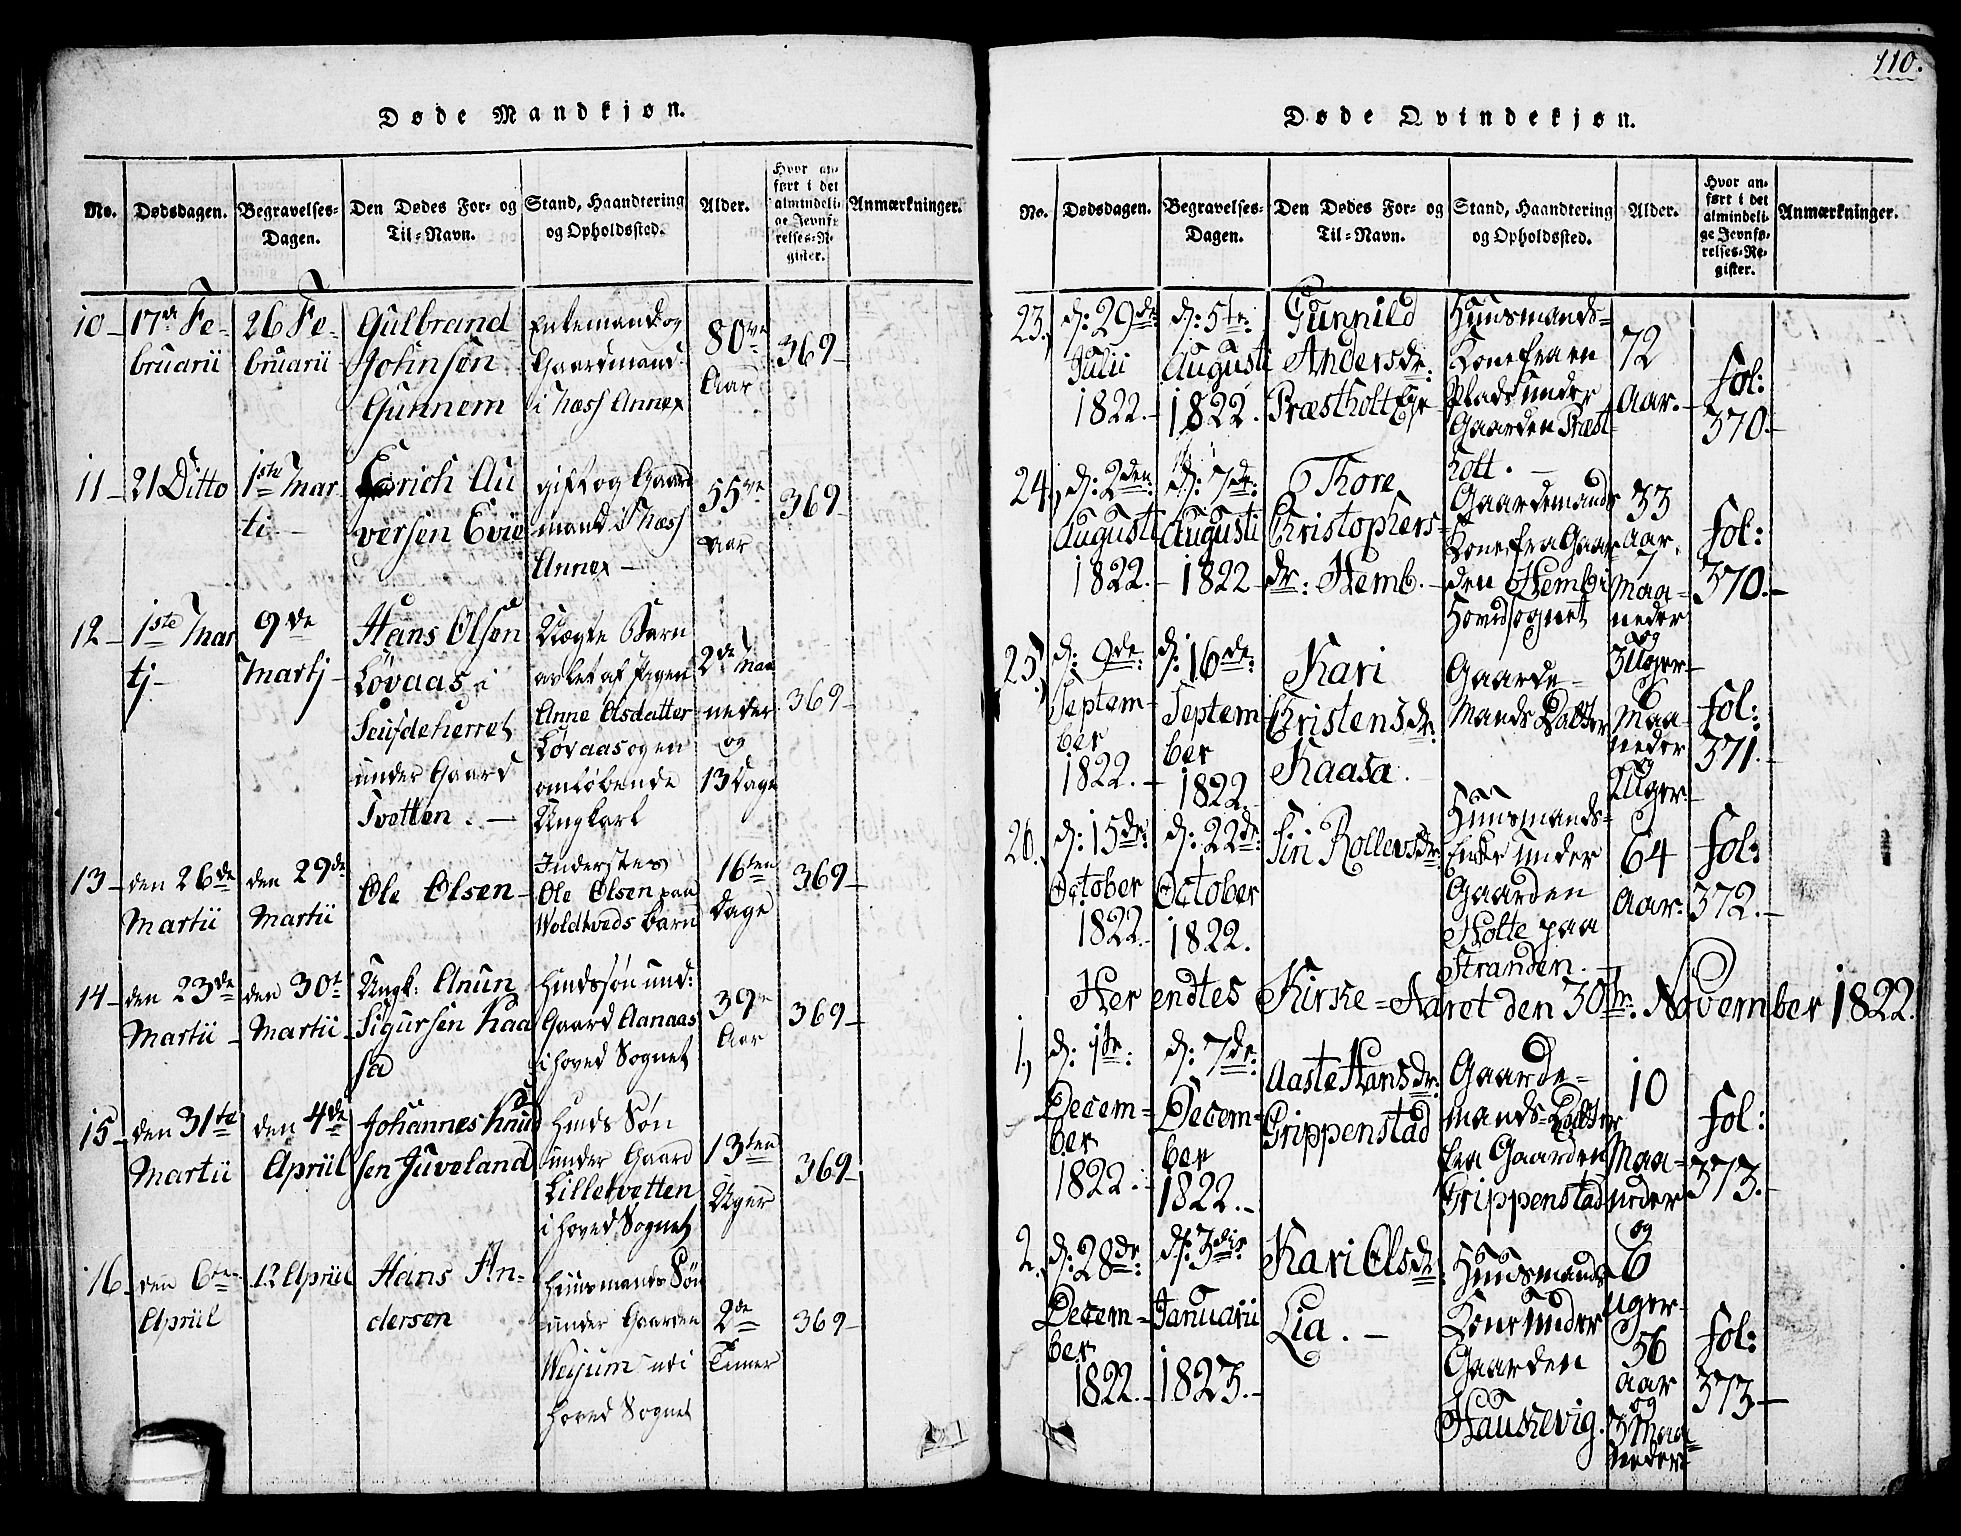 110.
Døde Mandkjøn.
No.
Dødsdagen.
Begravelses-
Dagen.
Den Dødes For- og
Til-Navn.
Stand, Haandtering
og Opholdssted.
Alder.
Hvor an-
ført i det
almindeli-
ge Jevnfø-
relses-Re-
gister.
Anmærkninger.
10 -
17de Fe-
bruarii
26 Fe-
bruarii
Gulbrand
Johnsen
Gunnem
Enkemand og
Gaardmand
i Næss Annex
80ve
Aar
369 -
11 -
21 Ditto
1ste Mar
ti -
Erich Au
versen Evie
gift og Gaard
mand i Næss
Annex -
55ve
Aar
369 -
12 -
1ste Mar
tj -
9de
Martj -
Hans Olsen
Løvaas i
Seufdeherret
under Gaard
Tvetten . -
Uægte Barn
avlet af Pigen
Anne Olsdatter
Løvaas og en
omløbende
Ungkarl
2de Maa
neder
og
13 Dage
369 -
13 -
den 26de
Martii
den 29de
Martii
Ole Olsen -
Inderstes
Ole Olsen paa
Woldtveds Barn
16ten
Dage
369 -
14 -
den 23de
Martii -
den 30t
Martii -
Ungk: Anun
Sigursen Kaa
sa
Huusssøn und:
Gaard Aanaas
i Hoved Sognet
39ve
Aar
369 -
15 -
den 31te
Martii
den 4de
April
Johannes Knud
sen Juveland
Huus Søn
under Gaard
Lilletvetten
i Hoved Sognet
13ten
Uger
369 -
16
den 6te
Apriil
12 Apriil
Hans An-
dersen
Huusmands Søn
under Gaarden
i
Hoved Sognet
2de
Timer
369 -
Døde Qvindekjøn.
No.
Dødsdagen.
Begravelses-
Dagen.
Den Dødes For- og
Til-Navn.
Stand, Haandtering
og Opholdssted.
Alder.
Hvor an-
ført i det
almindeli-
ge Jevnfø-
relses-Re-
gister.
Anmærkninger.
23.
d: 29de
Julii
1822. -
d: 5te
Augusti
1822.
Gunnild
Andersdr:
Præstholt Eye
Huusmands-
Kone fra en
Plads under
Gaarden Præst-
holt. -
72
Aar. -
Fol:
370. -
24.
d: 2den
Augusti
1822. -
d: 7de:
Augusti
1822 -
Thore
Christophers-
dr: Hemb. -
Gaardemands
Kone fra Gaar-
den Hemb i
Hovedsognet
33
Aar.
7
Maa-
neder
og
3 Uger -
Fol:
370. -
25.
d: 9de:
Septem-
ber
1822. -
d: 16de:
Septem
ber
1822.
Kari
Christensdr:
Kaasa.
Gaarde-
Mands Datter
6
Maa-
neder
og
Uger -
Fol:
371. -
26.
d: 15de:
October
1822. -
d: 22de
October
1822.
Siri Rollevsdr:
Huusmands-
Enke under
Gaarden
Holte paa
Stranden. -
64
Aar.
Fol:
372. -
Her endtes Kirke-Aaret den 30te: November 1822.
1,
d: 1te:
Decem-
ber
1822. -
d: 7de:
Decem-
ber
1822. -
Aaste Hansdr:
Grippenstad
Gaarde-
mands-Datter
fra Gaarden
Grippenstad
10
Maa-
neder
og
6
Uger -
Fol:
373. -
2.
d: 28de:
Decem-
ber
1822. -
d: 3die
Januarii
1823. -
Kari Olsdr:
Lia. -
Huusmands
Kone under
Gaarden
Haukevig.
56
Aar
og
3 Maa-
neder
Fol:
373 -